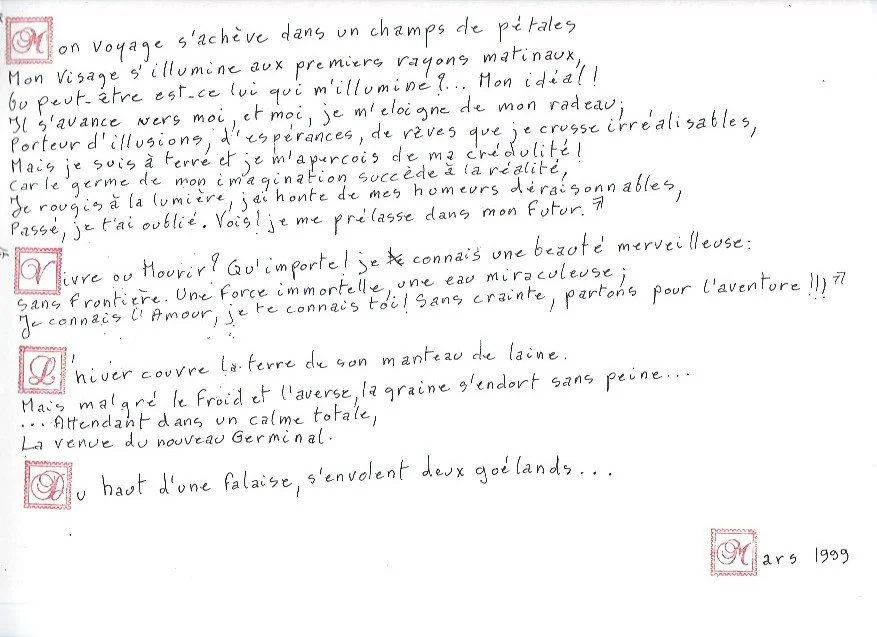 Mon voyage s'achève dans un champs de pétales
Mon visage s'illumine aux premiers rayons matinaux,
Ou peut-être est-ce lui qui m'illumine?... Mon idéal!
Il s'avance vers moi, et moi, je m'eloigne de mon radeau;
Porteur d'illusions, d'espérances, de rêves que je crusse irréalisables,
Mais je suis à terre et je m'apercois de ma crédulité!
Car le germe de mon imagination succède à la réalité,
Je rougis à la lumière, j'ai honte de mes humeurs déraisonnables,
Passé, je t'ai oublié. Vois! je me prélasse dans mon futur.
Vivre ou Mourir? Qu'importe! je connais une beauté merveilleuse:
Sans frontière. Une force immortelle, une eau miraculeuse;
Je connais l'Amour, je te connais toi! Sans crainte, partons pour l'aventure!!!
L'hiver couvre la terre de son manteau de laine.
Mais malgré le froid et l'averse, la graine s'endort sans peine...
... Attendant dans un calme totale,
La venue du nouveau Germinal.
Du haut d'une falaise, s'envolent deux goélands...
Mars 1999